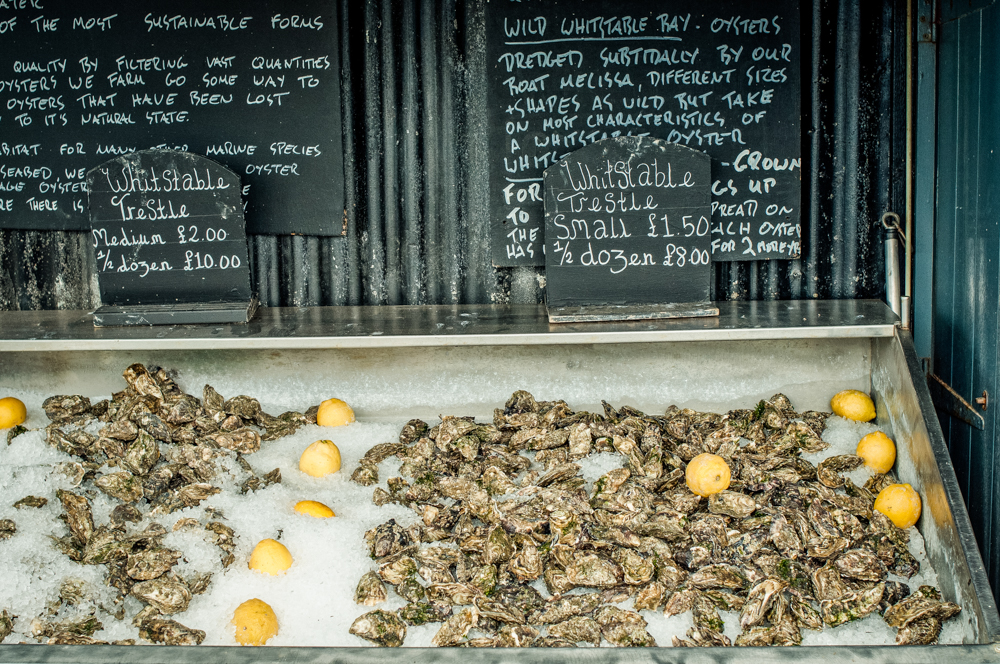 OF THE MOST SUSTAINABLE FORMS
QUALITY BY FILTERING VAST QUANTITIES
OYSTERS WE FARM GO SOME WAY TO
OYSTERS THAT HAVE BEEN LOST
TO IT'S NATURAL STATE.
FOR MANY MARINE SPECIES
SEABED, WE OYSTER
OYSTER
THERE IS
Whitstable
Trestle
Medium £2.00
1/2 dozen £10.00
WILD WHITSTABLE BAY. OYSTERS
DREDGED SUBTIDALLY BY OUR
BOAT MELISSA, DIFFERENT SIZES
+SHAPES AS WILD BUT TAKE
ON MOST CHARACTERISTICS OF
A WHITSTABLE OYSTER
-GROWN
FOR UP
TO ON
THE OYSTER
HAS FOR 2 MORE
Whitstable
Trestle
Small £1.50
1/2 dozen £8.00